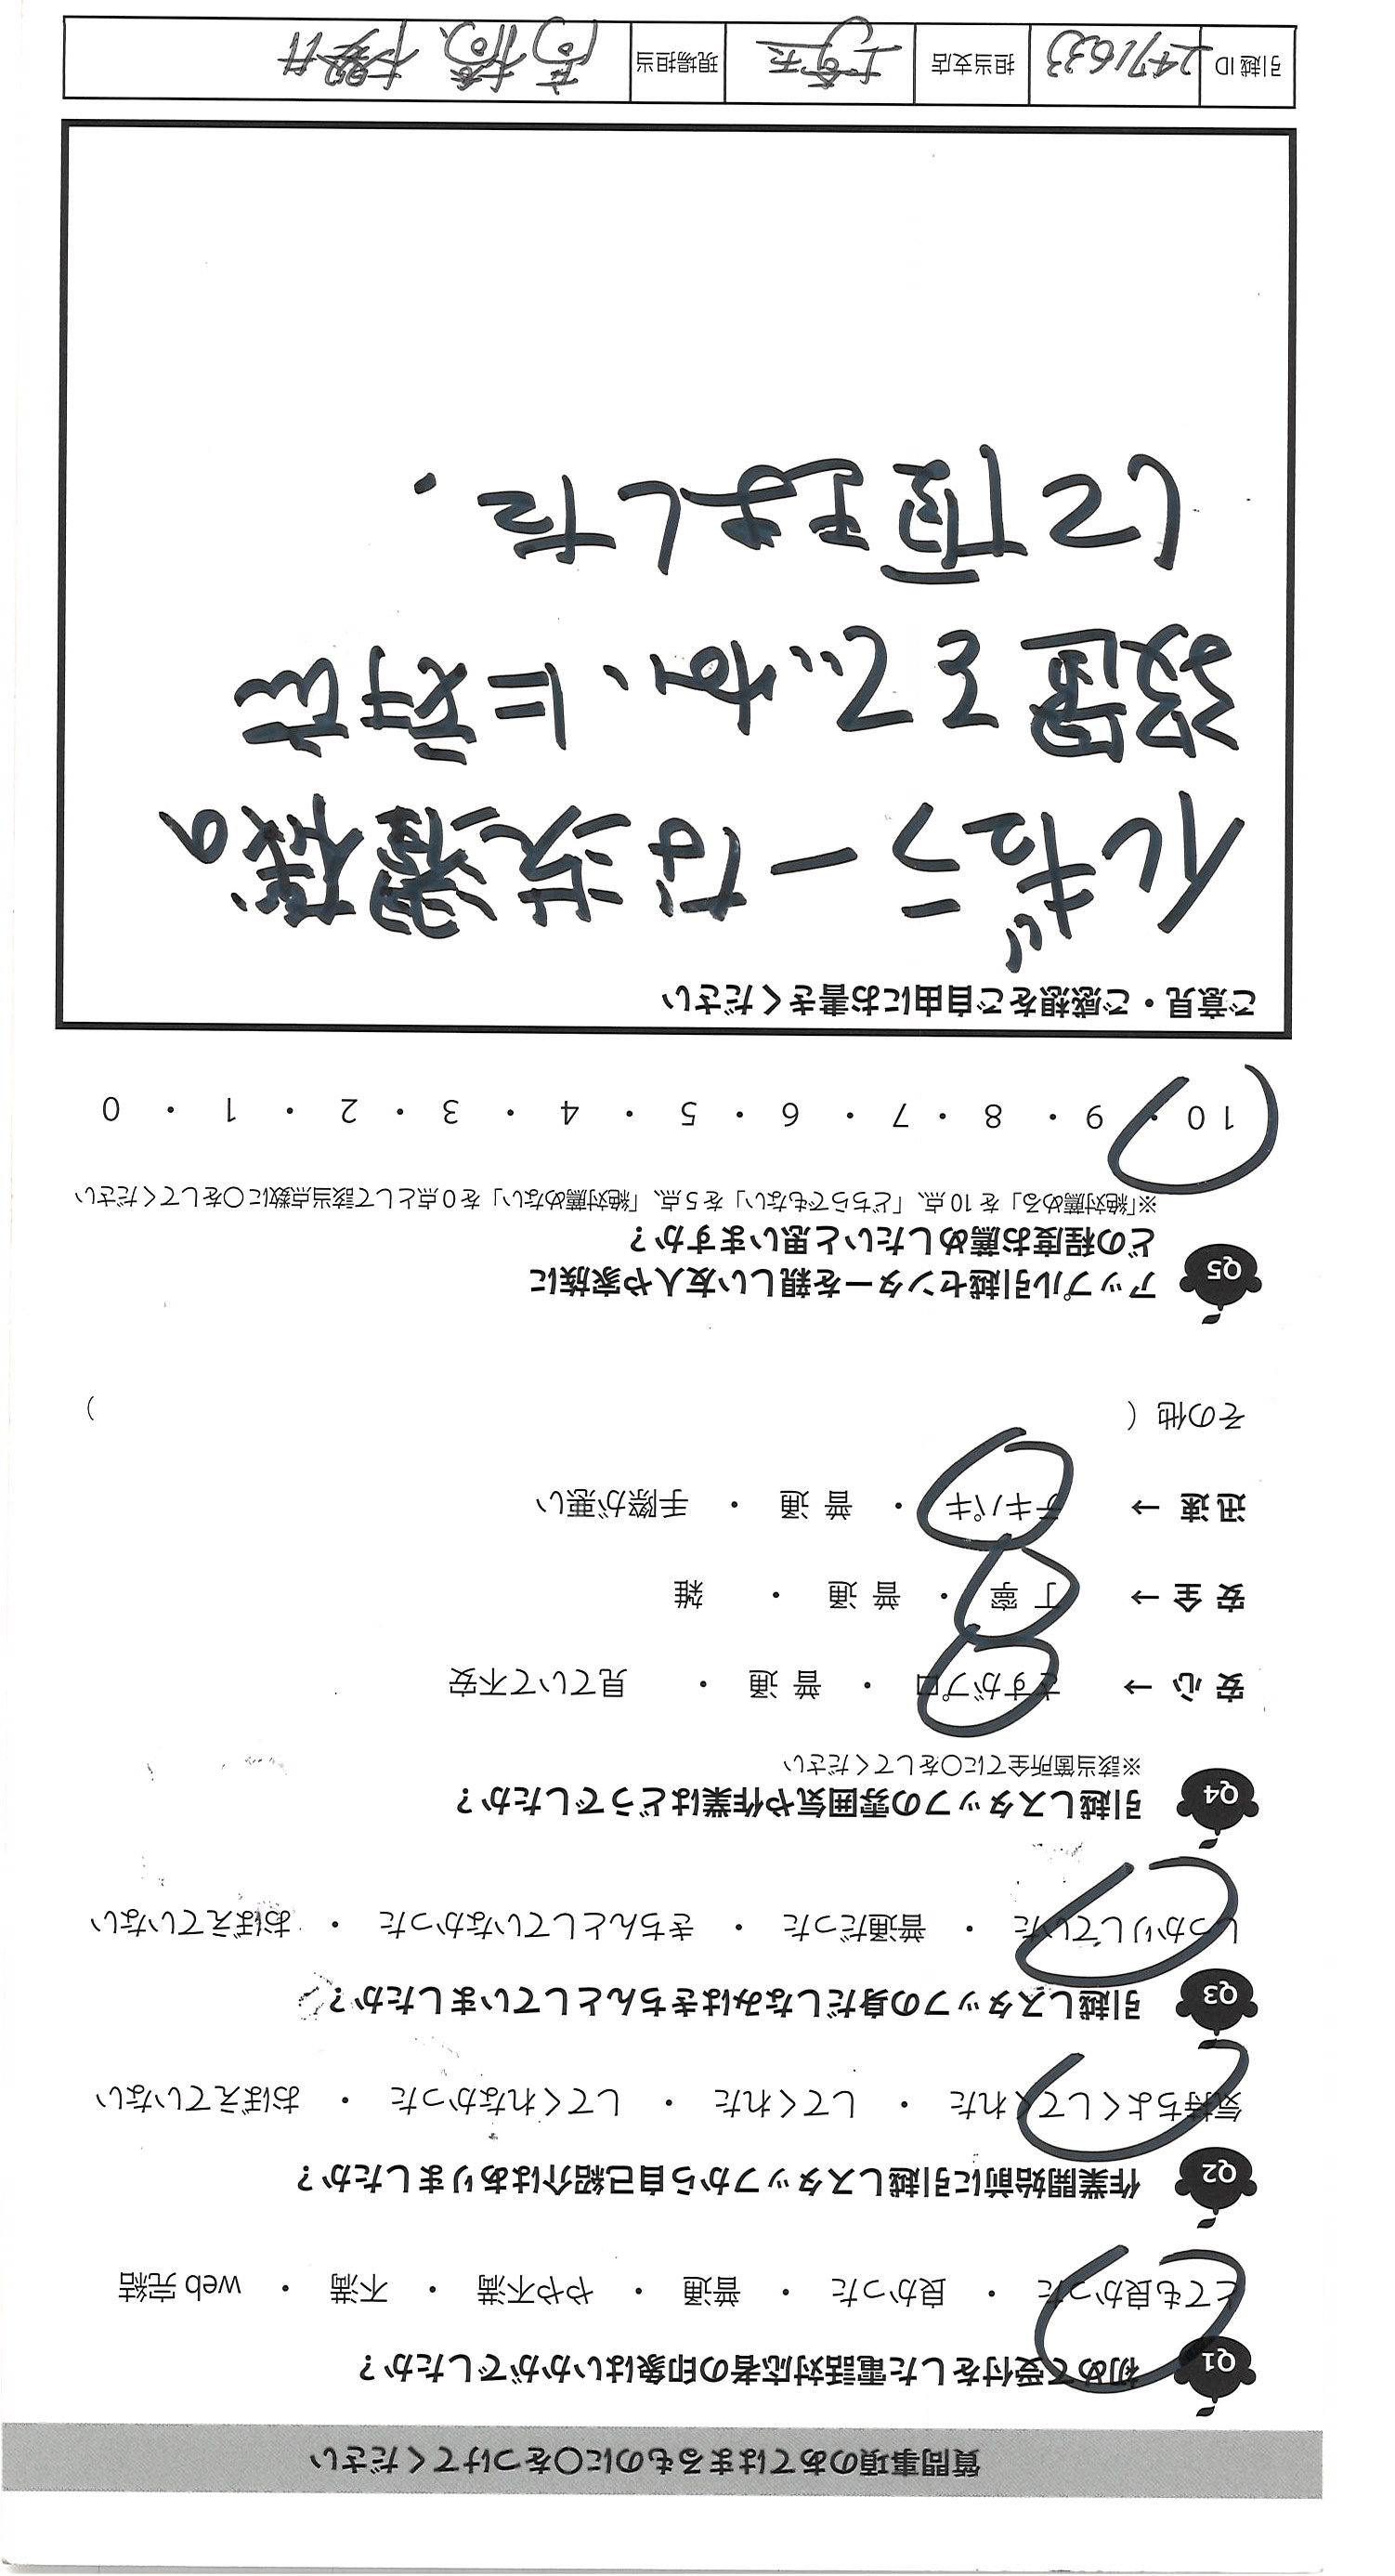 質問事項のあてはまるものに○をつけてください
Q1 初めて受付をした電話対応者の印象はいかがでしたか?
とても良かった ・ 良かった ・ 普通 ・ やや不満 ・ 不満 ・ web 完結
Q2 作業開始前に引越しスタッフから自己紹介はありましたか?
気持ちよくしてくれた ・ してくれた ・ してくれなかった ・ おぼえていない
Q3 引越しスタッフの身だしなみはきちんとしていましたか?
しっかりしていた ・ 普通だった ・ きちんとしていなかった ・ おぼえていない
Q4 引越しスタッフの雰囲気や作業はどうでしたか?
※該当箇所全てに○をしてください
安 心 → さすがプロ ・ 普 通 ・ 見ていて不安
安 全 → 丁 寧 ・ 普 通 ・ 雑
迅 速 → テキパキ ・ 普 通 ・ 手際が悪い
その他 ( )
Q5 アップル引越センターを親しい友人や家族に
どの程度お薦めしたいと思いますか?
※「絶対薦める」を 10 点、「どちらでもない」を 5 点、「絶対薦めない」を 0 点として該当点数に○をしてください
10 ・ 9 ・ 8 ・ 7 ・ 6 ・ 5 ・ 4 ・ 3 ・ 2 ・ 1 ・ 0
ご意見・ご感想をご自由にお書きください
イレギュラーな洗濯機の
設置をていねいに対応
して頂きました.
引越 ID 2471633 担当支店 埼玉 現場担当 高橋、櫻井